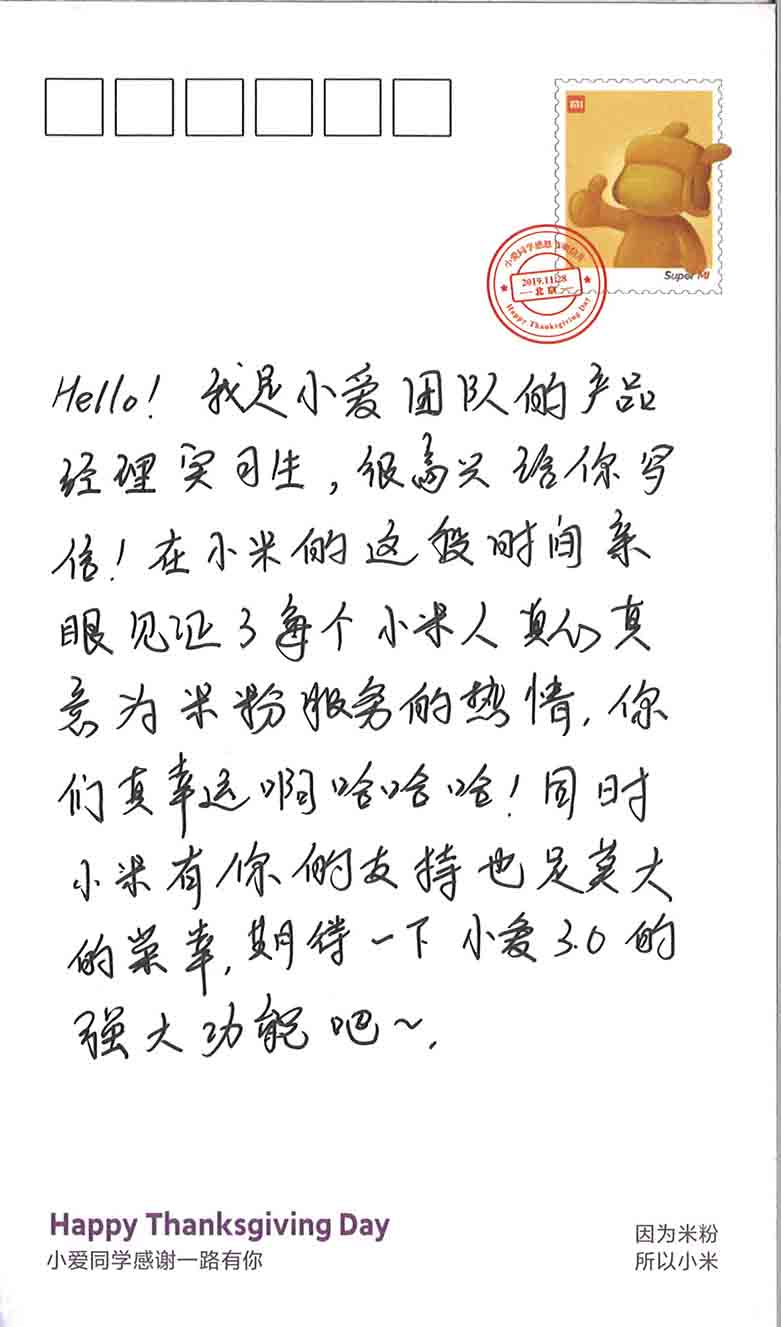 MI
Super MI
小爱同学感恩
2019.11.28
北京
Happy Thanksgiving Day
Hello! 我是小爱团队的产品
经理实习生，很高兴给你写
信！在小米的这段时间亲
眼见证了每个小米人真心真
意为米粉服务的热情，你
们真幸运啊哈哈哈！同时
小米有你的支持也是莫大
的荣幸，期待一下小爱3.0的
强大功能吧～.
Happy Thanksgiving Day
小爱同学感谢一路有你
因为米粉
所以小米